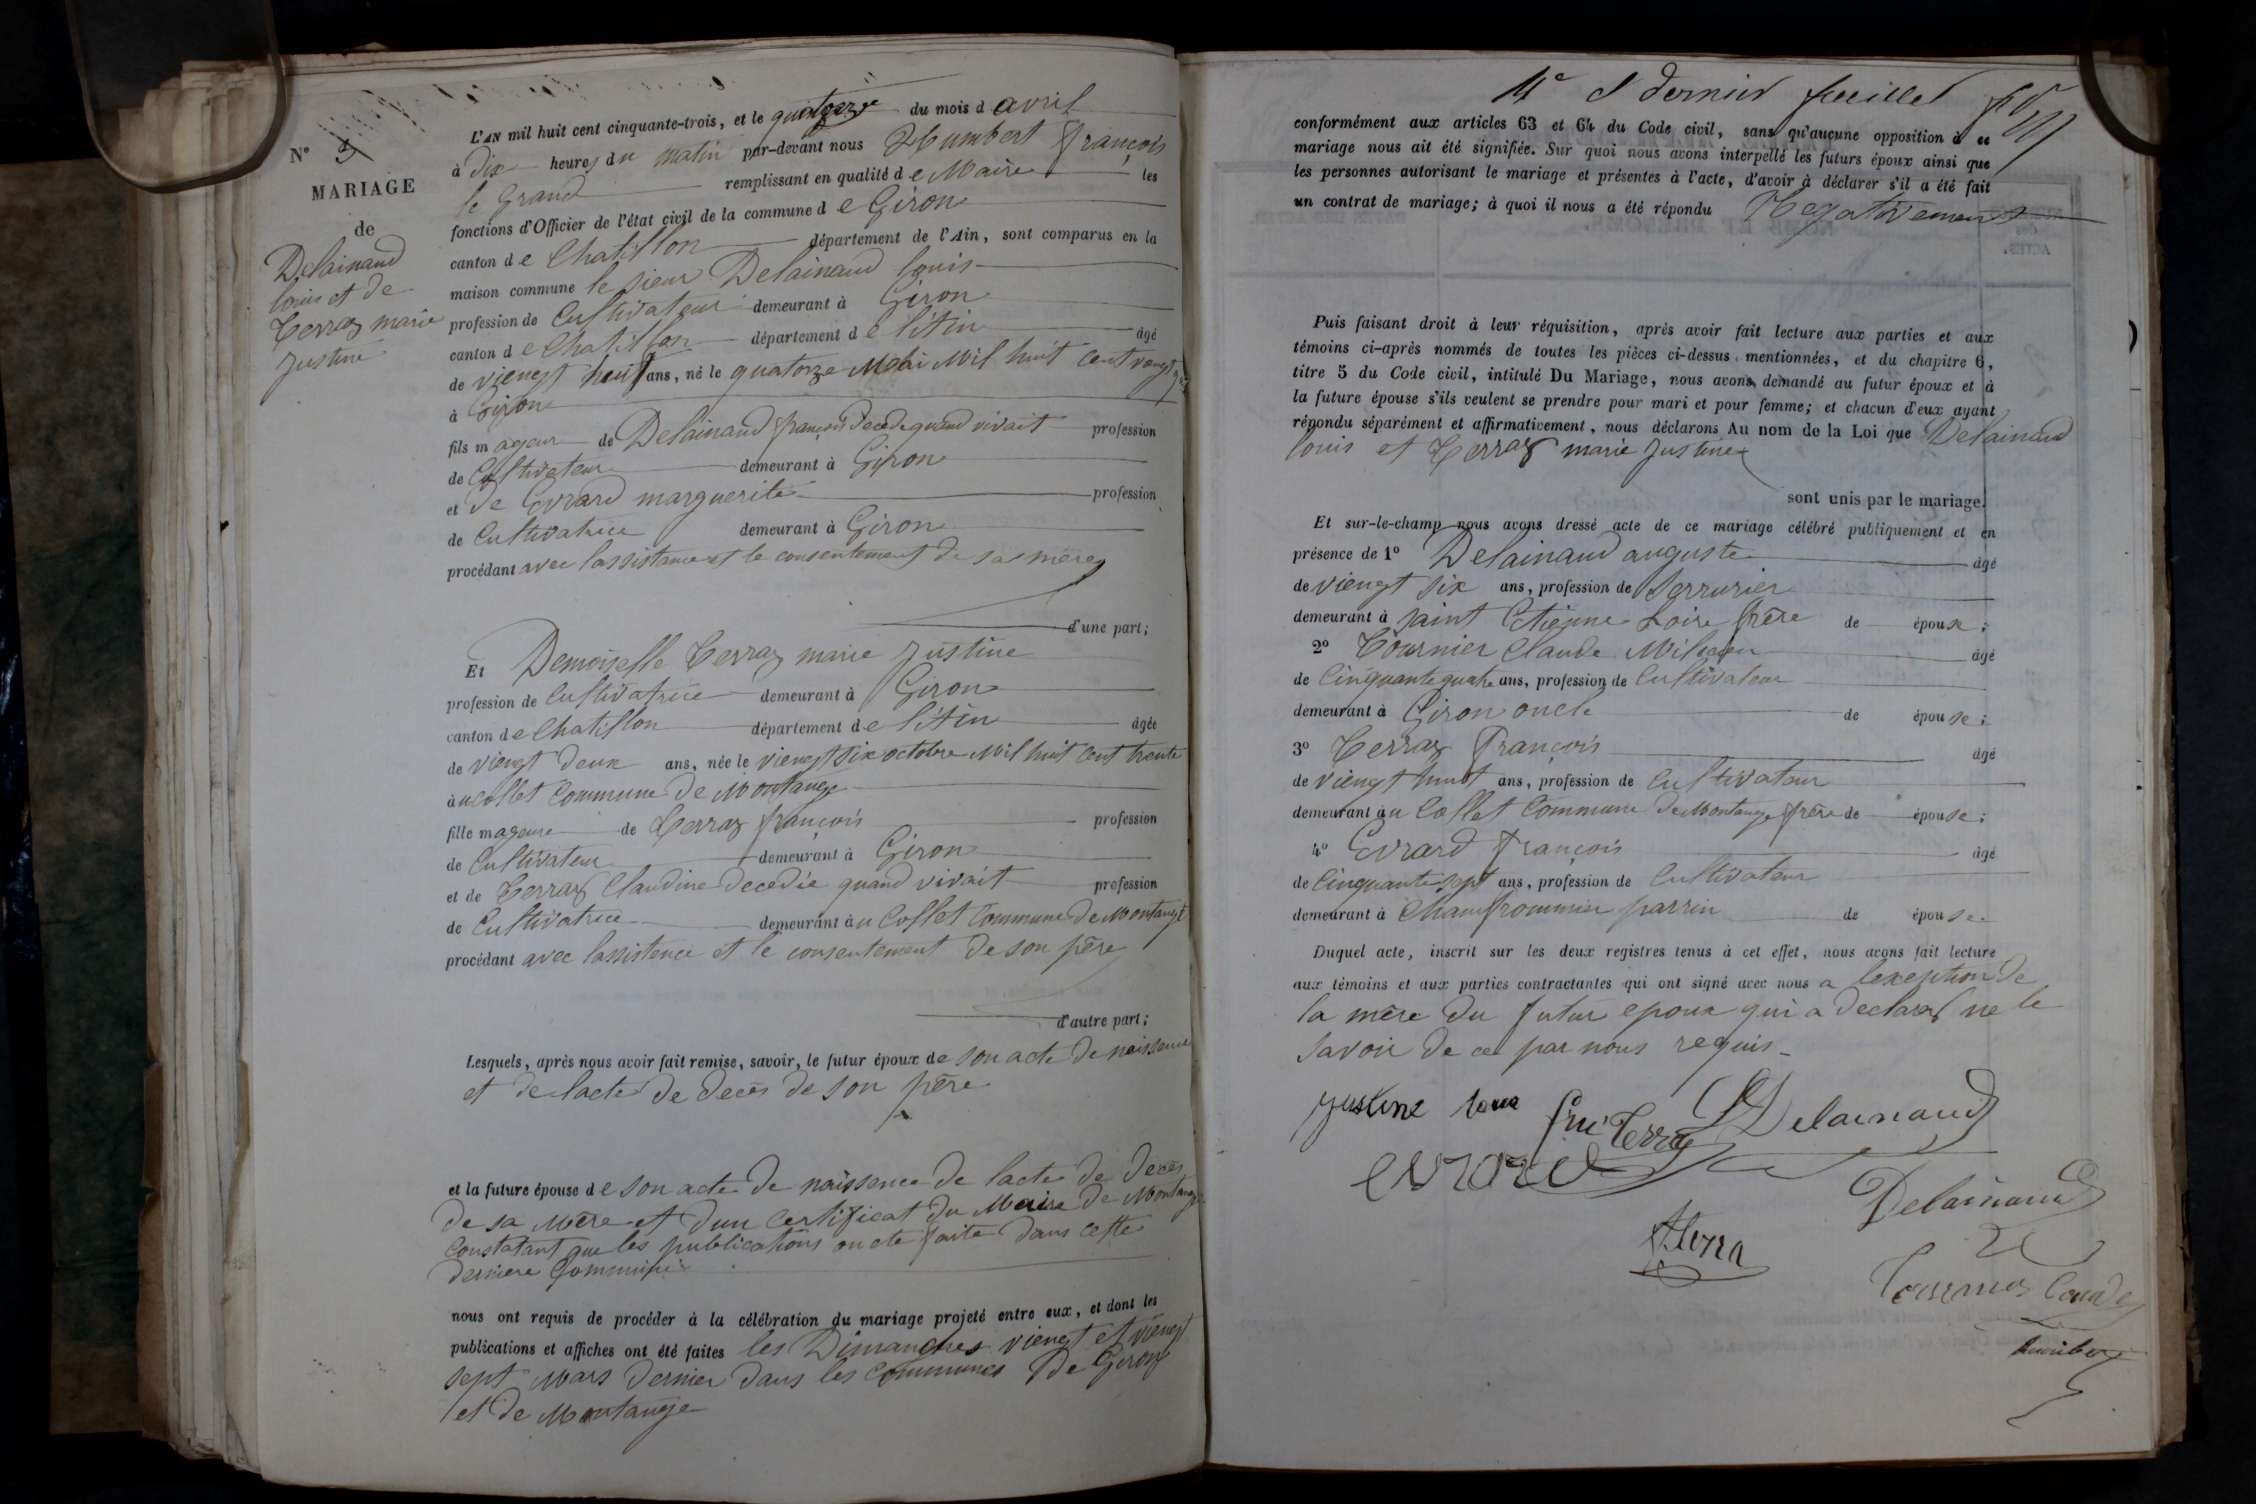 N° 3
MARIAGE
de
Delainaud
louis et de
Terraz marie
justine
L'AN mil huit cent cinquante-trois, et le quatorze du mois d avril
à dix heures du matin par-devant nous Humbert françois
le Grand remplissant en qualité de Maire les
fonctions d'Officier de l'état civil de la commune de Giron
canton de Chatillon département de l'Ain, sont comparus en la
maison commune le sieur Delainaud louis
profession de Cultivateur demeurant à Giron
canton de Chatillon département de l'Ain âgé
de viengt neuf ans, né le quatorze Mai Mil huit Cent vengt
à Giron
fils mageur de Delainaud françois Decede quand vivait profession
de Cultivateur demeurant à Giron
et de Evrard marguerite profession
de Cultivatrice demeurant à Giron
procédant avec lassistance et le consentement de sa mère
d'une part;
Et Demoiselle Terraz marie justine
profession de Cultivatrice demeurant à Giron
canton de Chatillon département de l'Ain âgée
de viengt deux ans, née le viengt six octobre Mil huit Cent trente
au Collet Commune de Montange
fille mageure de Terraz françois profession
de Cultivateur demeurant à Giron
et de Terraz Claudine decedée quand vivait profession
de Cultivatrice demeurant au Collet Commune de Montange
procédant avec lassistence et le consentement de son père
d'autre part;
Lesquels, après nous avoir fait remise, savoir, le futur époux de son acte de naissence
et de lacte de decès de son père
et la future épouse de son acte de naissence de lacte de decès
de sa Mère et d'un Certificat du Maire de Montange
Constatant que les publications on ete faite dans cette
derniere Commune
nous ont requis de procéder à la célébration du mariage projeté entre eux, et dont les
publications et affiches ont été faites les Dimanches viengt et viengt
sept Mars dernier dans les communes De Giron
et de Montange
4e et dernier feuillet
conformément aux articles 63 et 64 du Code civil, sans qu'aucune opposition à ce
mariage nous ait été signifiée. Sur quoi nous avons interpellé les futurs époux ainsi que
les personnes autorisant le mariage et présentes à l'acte, d'avoir à déclarer s'il a été fait
un contrat de mariage; à quoi il nous a été répondu Negativement
Puis faisant droit à leur réquisition, après avoir fait lecture aux parties et aux
témoins ci-après nommés de toutes les pièces ci-dessus mentionnées, et du chapitre 6,
titre 5 du Code civil, intitulé Du Mariage, nous avons demandé au futur époux et à
la future épouse s'ils veulent se prendre pour mari et pour femme; et chacun d'eux ayant
répondu séparément et affirmativement, nous déclarons Au nom de la Loi que Delainaud
louis et Terraz marie justine
sont unis par le mariage.
Et sur-le-champ nous avons dressé acte de ce mariage célébré publiquement et en
présence de 1° Delainaud auguste âgé
de viengt six ans, profession de Serrurier
demeurant à saint Etienne Loire frère de époux;
2° Tournier Claude âgé
de Cinquante quatre ans, profession de Cultivateur
demeurant à Giron oncle de épouse;
3° Terraz François âgé
de viengt huit ans, profession de Cultivateur
demeurant au Collet Commune de Montange frère de épouse;
4° Evrard François âgé
de Cinquante sept ans, profession de Cultivateur
demeurant à de épouse.
Duquel acte, inscrit sur les deux registres tenus à cet effet, nous avons fait lecture
aux témoins et aux parties contractantes qui ont signé avec nous a lexeption de
la mère du futur epoux qui a declaré ne le
savoir de ce par nous requis
justine Terra L Delainaud
evrard
Delainaud
f Terra
Tournier Claude
humbert